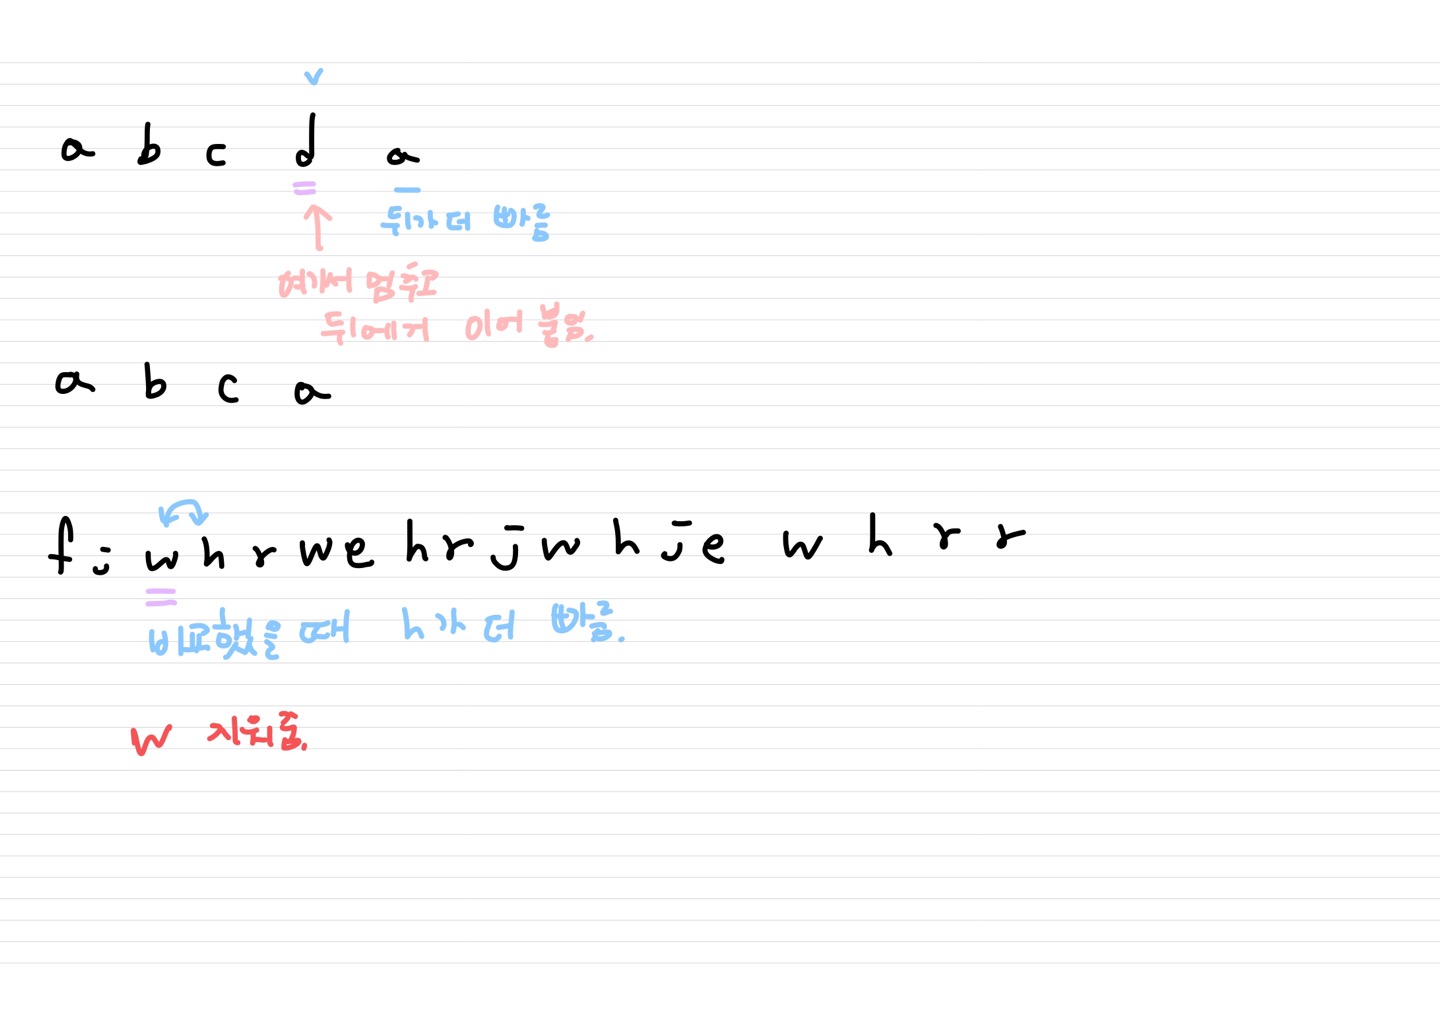 v
a b c d a
뒤가 더 빠름
여기서 멈추고
뒤에게 이어 붙임.
a b c a
f j w h r w e h r j w h j e w h r r
비교했을 때 h가 더 빠름.
w 지워줌.